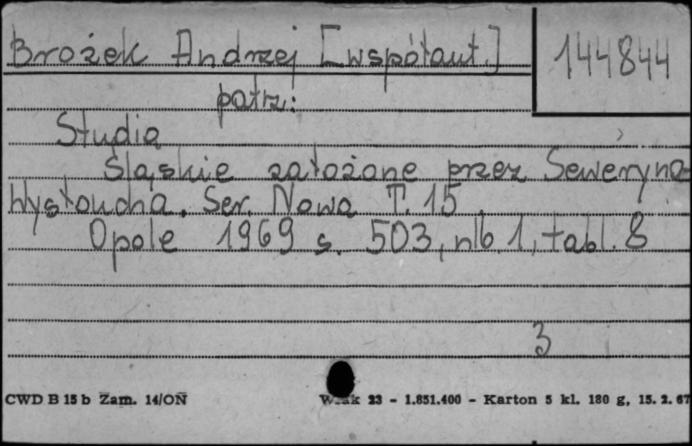 Brożek Andrzej [współaut.]
144844
patrz:
Studia
Śląskie założone przez Seweryna
Wysłoucha. Ser. Nowa T. 15
Opole 1969 s. 503, nlb. 1, tabl. 8
3
CWD B 15 b Zam. 14/OŃ
23 - 1.851.400 - Karton 5 kl. 180 g, 15. 2. 67